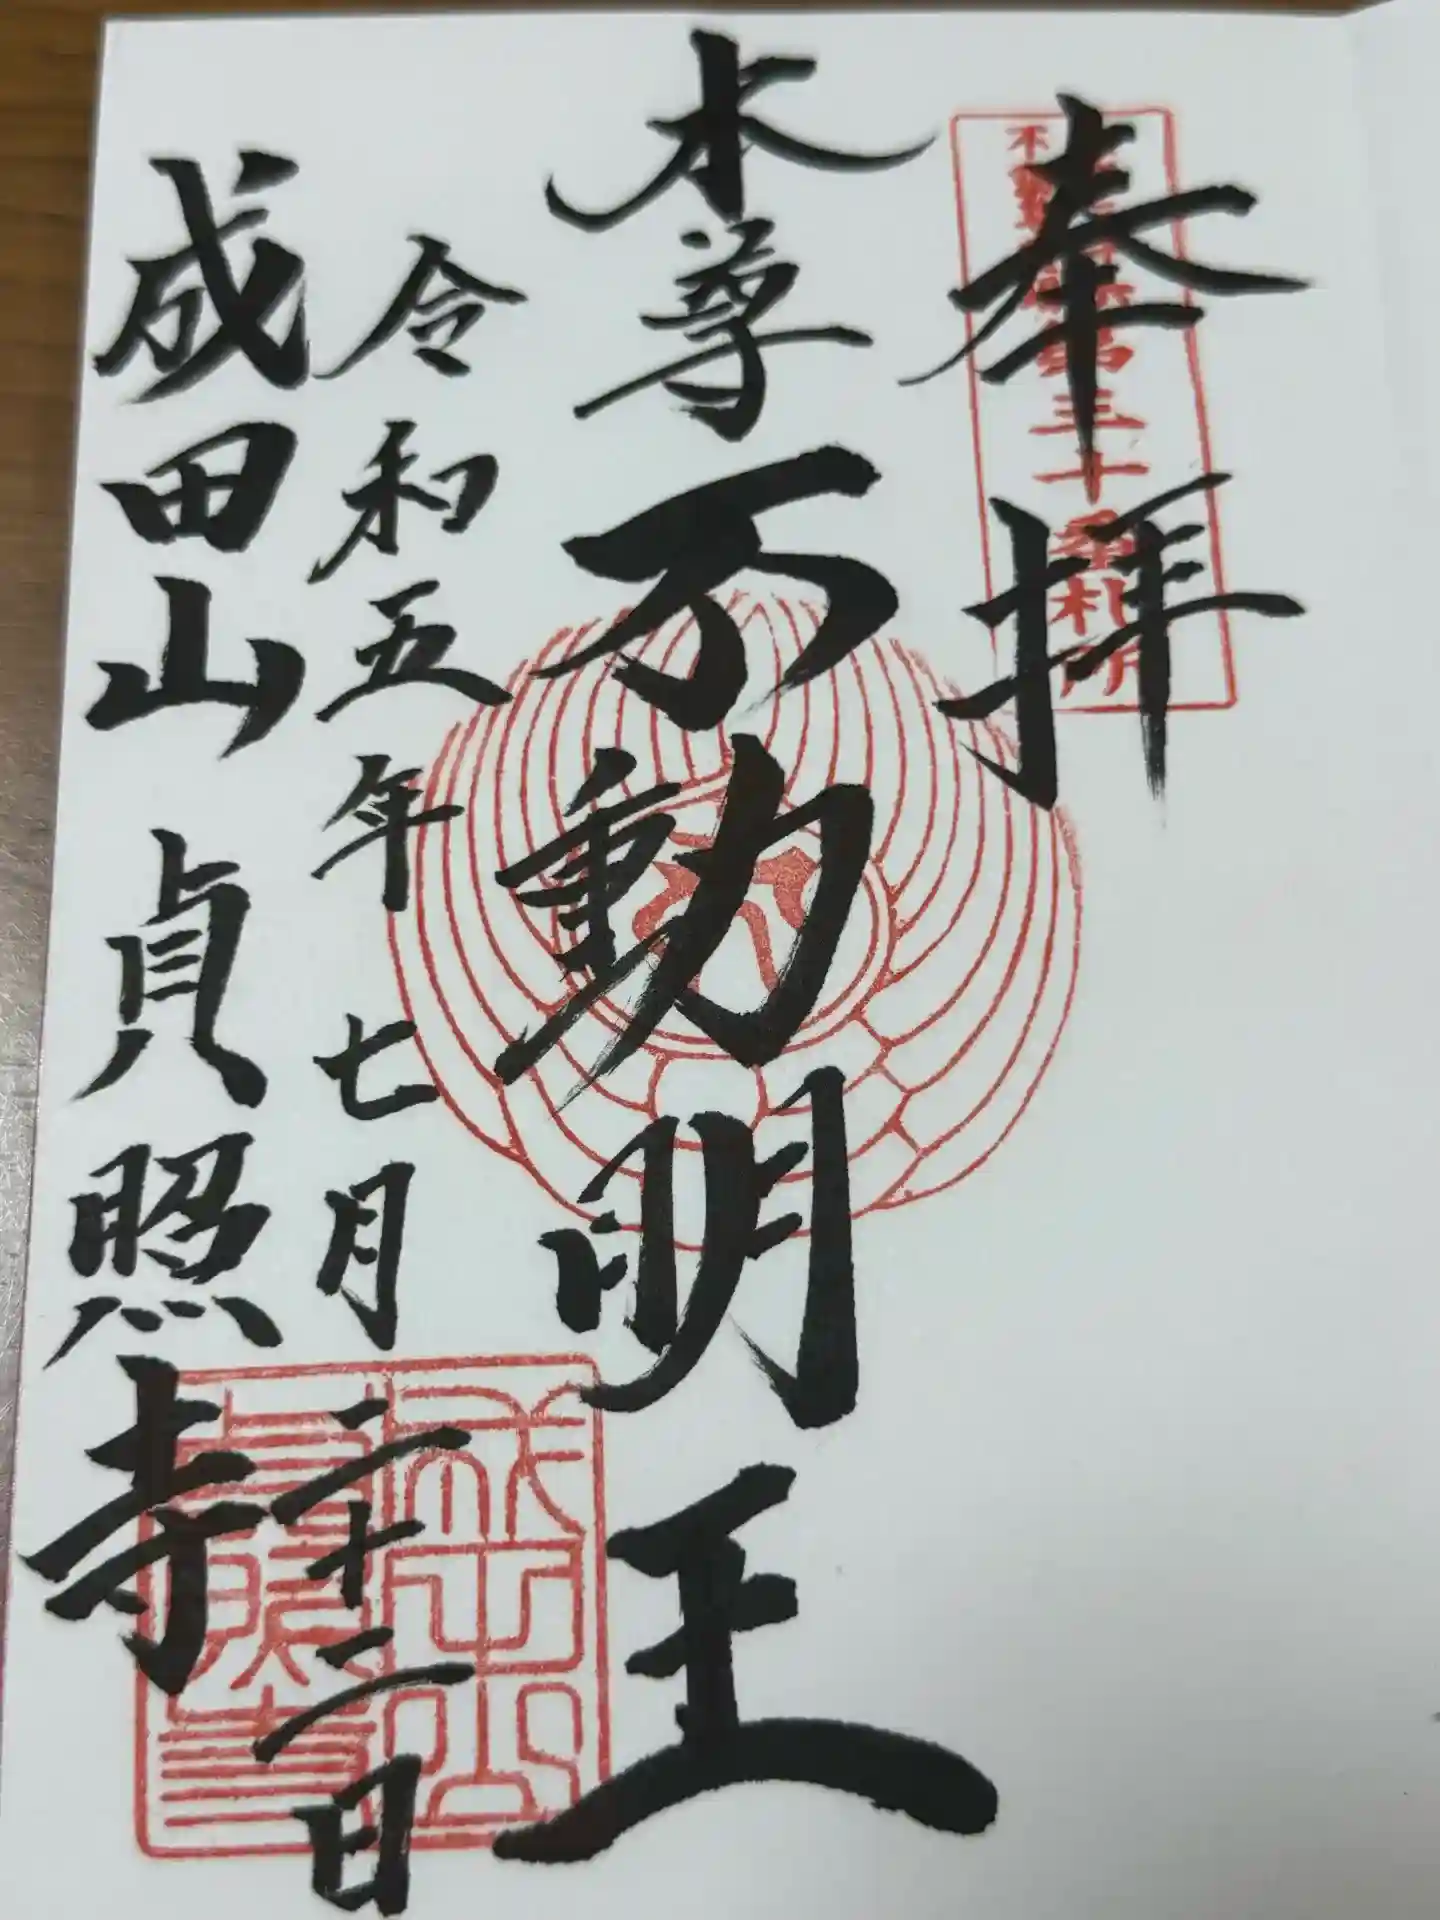 奉拝
本尊 不動明王
令和五年 七月 二十二日
成田山 貞照寺
第三十番札所
成田山
貞照寺